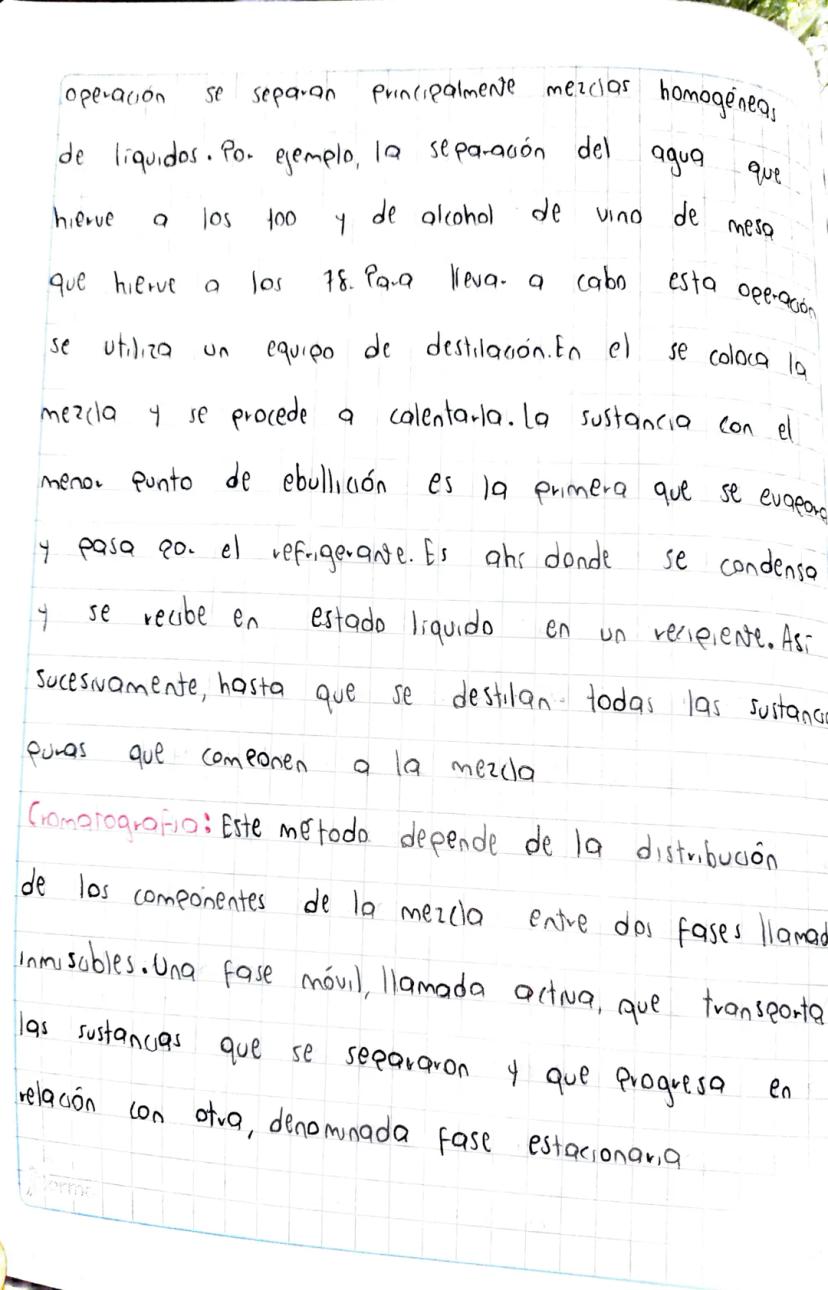 operación se separan principalmente mezclas homogéneas
de líquidos. Por ejemplo, la separación del agua que
hierve a los 100 y de alcohol de vino de mesa
que hierve a los 78. Para llevar a cabo esta operación
se utiliza un equipo de destilación. En el se coloca la
mezcla y se procede a calentarla. La sustancia con el
menor punto de ebullición es la primera que se evapora
y pasa por el refrigerante. Es ahí donde se condensa
y se recibe en estado líquido en un recipiente. Así
sucesivamente, hasta que se destilan todas las sustanc
puras que componen a la mezcla
Cromatografía: Este método depende de la distribución
de los componentes de la mezcla entre dos fases llamad
inmiscibles. Una fase móvil, llamada activa, que transporta
las sustancias que se separaron y que progresa en
relación con otra, denominada fase estacionaria
Norma